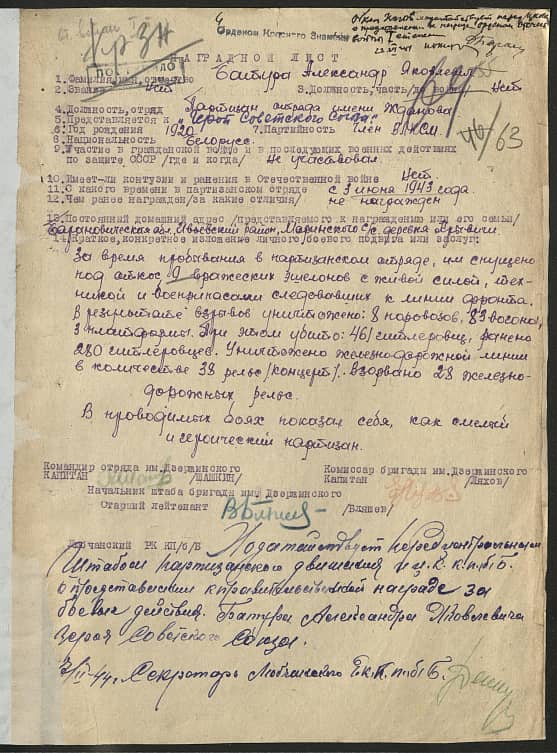 Орденом Красного Знамени
НАГРАДНОЙ ЛИСТ
1.Фамилия, имя, отчество Батура Александр Яковлевич
2.Звание Нет 3.Должность,часть Нет
4.Должность,отряд Партизан отряда имени Жданова
5.Представляется к "Герой Советского Союза"
6.Год рождения 1920 7.Партийность Член ВЛКСМ
8.Национальность Белорус.
9.Участие в гражданской войне и в последующих военных действиях
по защите СССР /где и когда/ Не участвовал
10.Имеет-ли контузии и ранения в Отечественной войне Нет.
11.С какого времени в партизанском отряде с 3 июня 1943 года.
12.Чем ранее награжден/за какие отличия/ не награжден
13.Постоянный домашний адрес /представляемого к награждению или его семьи/
Барановическая обл. Ивьевский район, с/с деревня
14.Краткое,конкретное изложение личного боевого подвига или заслуг:
За время пребывания в партизанском отряде, им спущено
под откос 9 вражеских эшелонов с живой силой, тех-
никой и боеприпасами следовавших к линии фронта.
В результате взрывов уничтожено: 8 паровозов, 83 вагона,
3 платформы. При этом убито: 461 гитлеровец, ранено
280 гитлеровцев. Уничтожено железнодорожной линии
в количестве 38 рельс /концерт/. Взорвано 28 железно-
дорожных рельс.
В проводимых боях показал себя, как смелый
и героический партизан.
Командир отряда им.Дзержинского Комиссар бригады им.Дзержинского
КАПИТАН /ШАШКИН/ Капитан /Ляхов/
Начальник штаба бригады им. Дзержинского
Старший лейтенант /Вляшев/
Любчанский РК КП/б/Б Ходатайствует перед центральным
штабом партизанского движения и ц.к. к.п.б/Б.
о представлении к правительственной награде за
боевые действия. Батуры Александра Яковлевича
Героя Советского Союза.
Секретарь Любчанского Р.к.к.п./б/ Б.